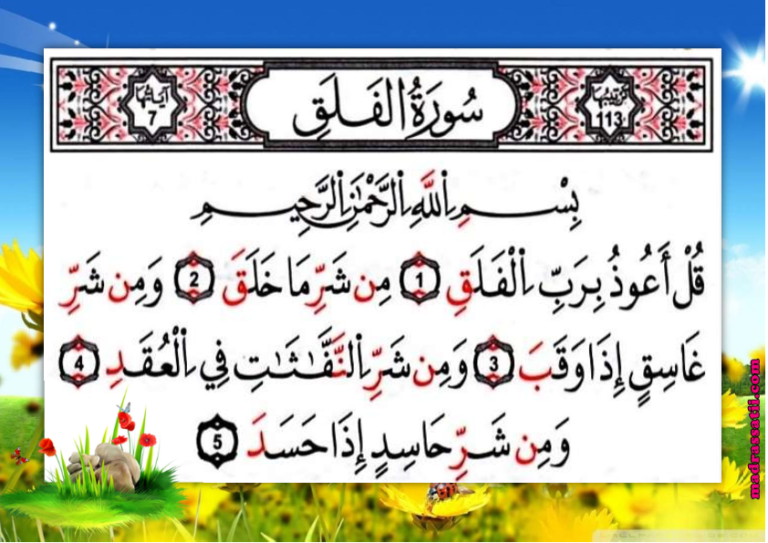 ترتيبها 113
سُورَةُ الفَلَقِ
آياتها 7
بِسْمِ اِللَّهِ اِلرَّحْمَٰنِ اِلرَّحِيمِ
قُلْ أَعُوذُ بِرَبِّ اِلْفَلَقِ 1 مِن شَرِّ مَا خَلَقَ 2 وَمِن شَرِّ
غَاسِقٍ إِذَا وَقَبَ 3 وَمِن شَرِّ اِلنَّفَّٰثَٰتِ فِي اِلْعُقَدِ 4
وَمِن شَرِّ حَاسِدٍ إِذَا حَسَدَ 5
madrassatii.com